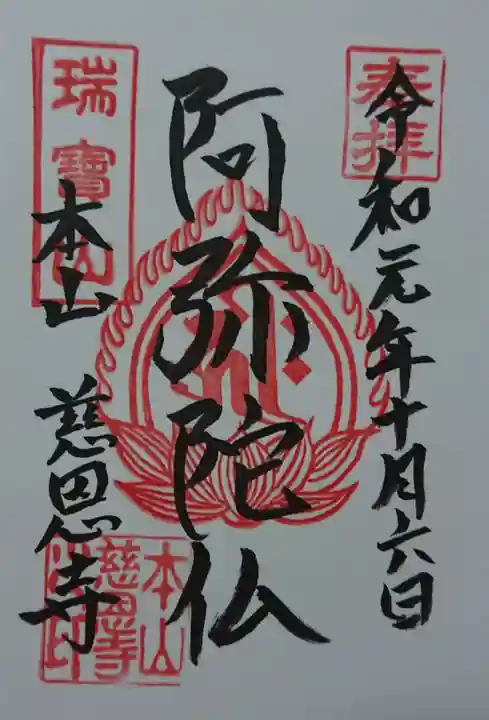 奉拝
令和元年十月六日
阿弥陀仏
瑞寶山
本山 慈恩寺
本山
慈恩寺